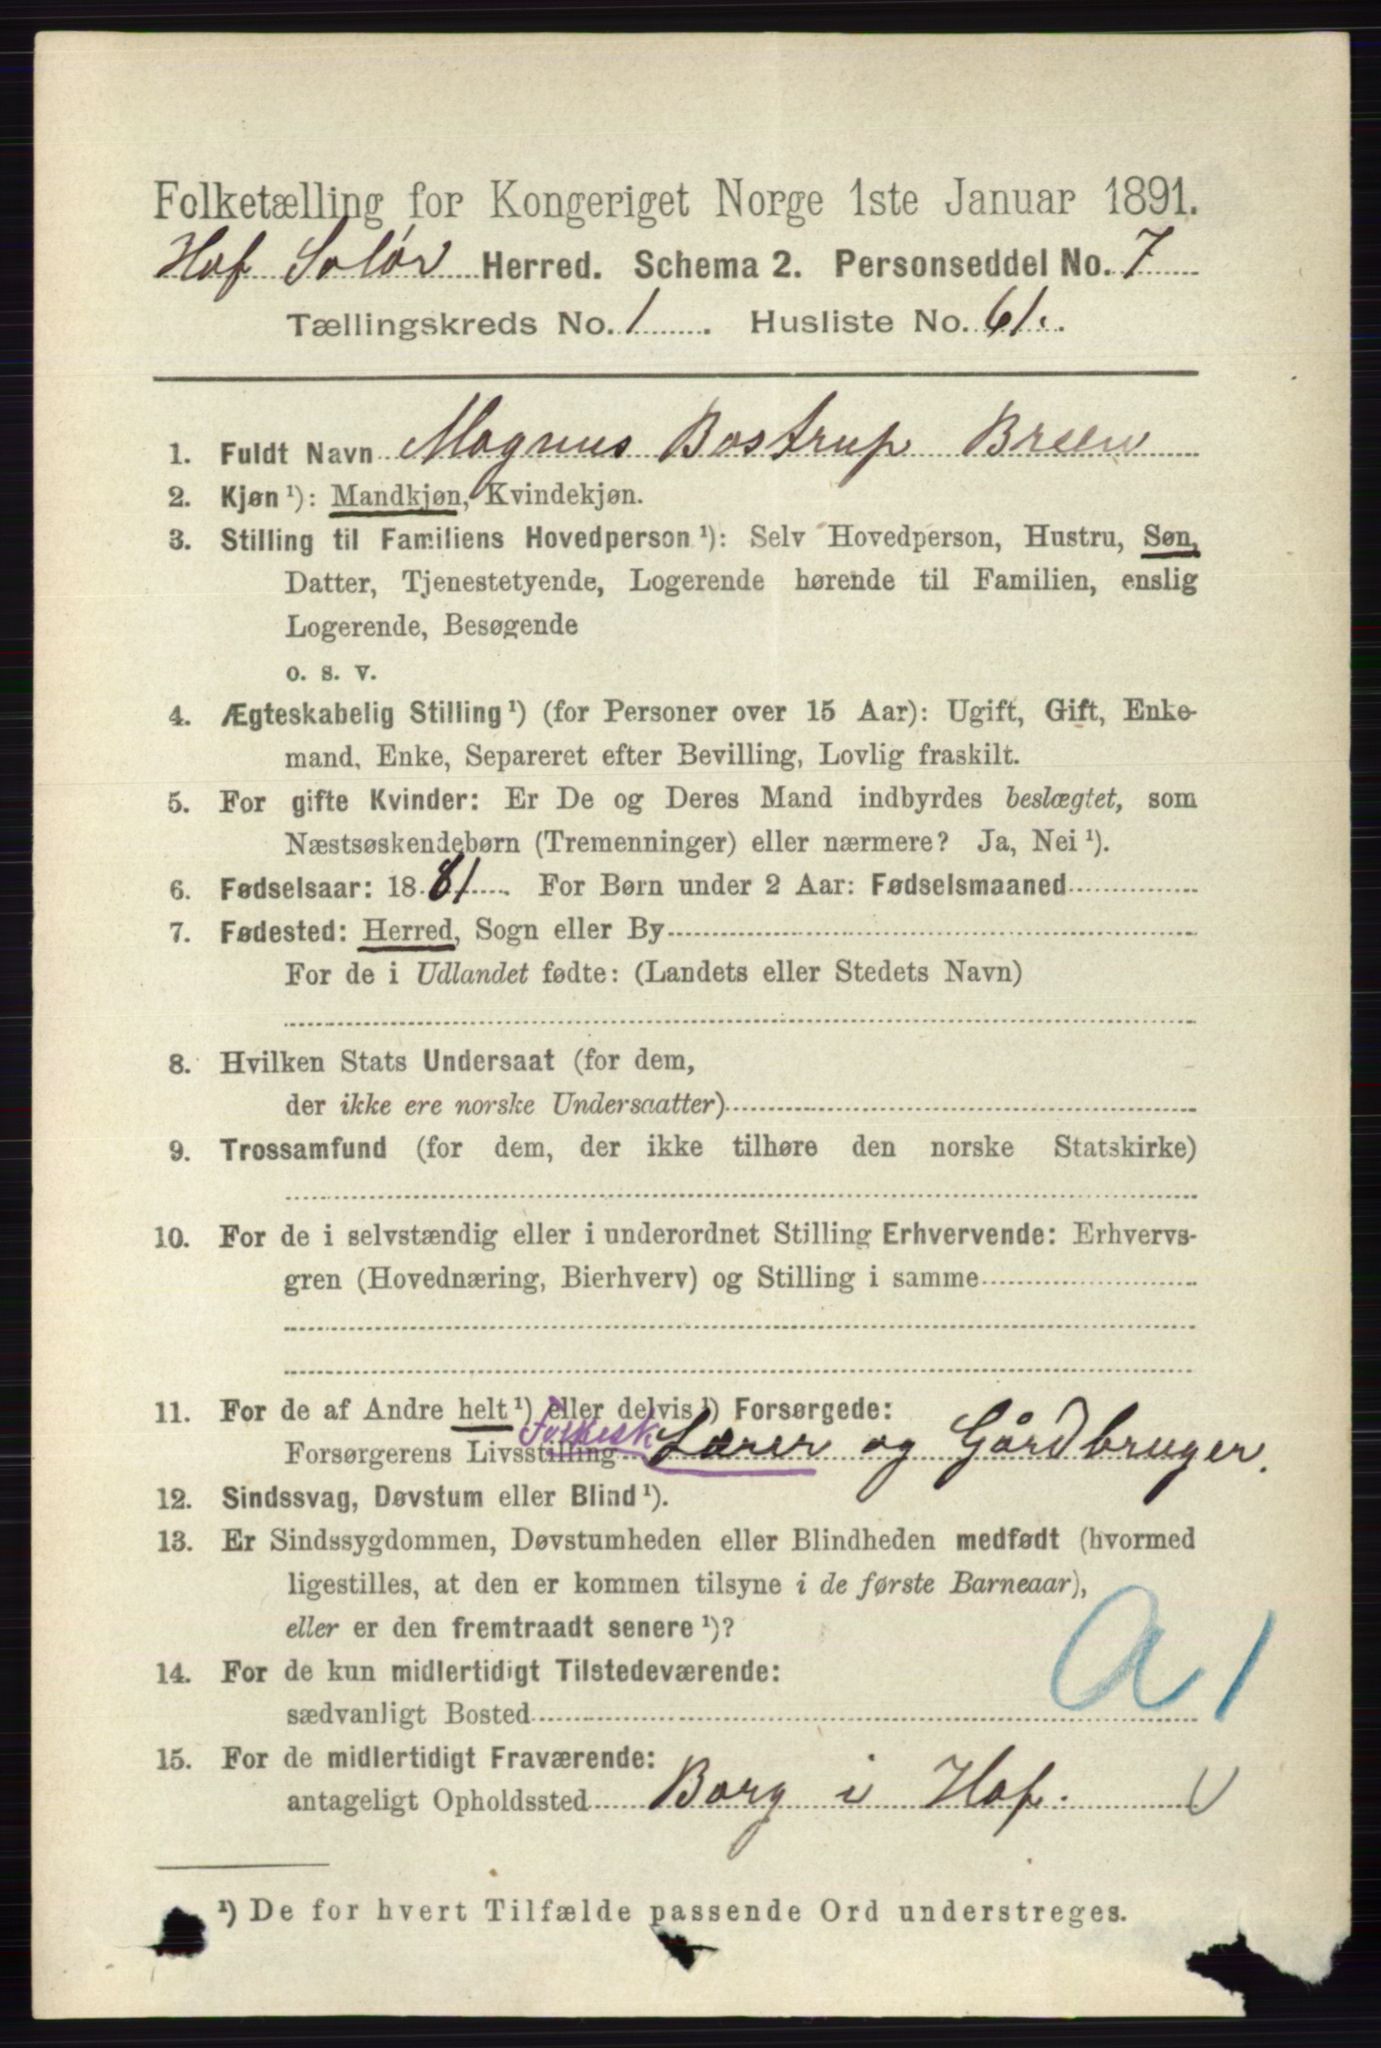 Folketælling for Kongeriget Norge 1ste Januar 1891.
Hof Solør Herred. Schema 2. Personseddel No. 7
Tællingskreds No. 1. Husliste No. 61.
1. Fuldt Navn Magnus Bostrup Breen
2. Kjøn ¹): Mandkjøn, Kvindekjøn.
3. Stilling til Familiens Hovedperson ¹): Selv Hovedperson, Hustru, Søn,
Datter, Tjenestetyende, Logerende hørende til Familien, enslig
Logerende, Besøgende
o. s. v.
4. Ægteskabelig Stilling ¹) (for Personer over 15 Aar): Ugift, Gift, Enke-
mand, Enke, Separeret efter Bevilling, Lovlig fraskilt.
5. For gifte Kvinder: Er De og Deres Mand indbyrdes beslægtet, som
Næstsøskendebørn (Tremenninger) eller nærmere? Ja, Nei ¹).
6. Fødselsaar: 1881. For Børn under 2 Aar: Fødselsmaaned
7. Fødested: Herred, Sogn eller By
For de i Udlandet fødte: (Landets eller Stedets Navn)
8. Hvilken Stats Undersaat (for dem,
der ikke ere norske Undersaatter)
9. Trossamfund (for dem, der ikke tilhøre den norske Statskirke)
10. For de i selvstændig eller i underordnet Stilling Erhvervende: Erhvervs-
gren (Hovednæring, Bierhverv) og Stilling i samme
11. For de af Andre helt ¹) eller delvis ¹) Forsørgede:
Folkesk
Forsørgerens Livsstilling Lærer og Gårdbruger.
12. Sindssvag, Døvstum eller Blind ¹).
13. Er Sindssygdommen, Døvstumheden eller Blindheden medfødt (hvormed
ligestilles, at den er kommen tilsyne i de første Barneaar),
eller er den fremtraadt senere ¹)?
A 1
14. For de kun midlertidigt Tilstedeværende:
sædvanligt Bosted
15. For de midlertidigt Fraværende:
antageligt Opholdssted Borg i Hof.
¹) De for hvert Tilfælde passende Ord understreges.